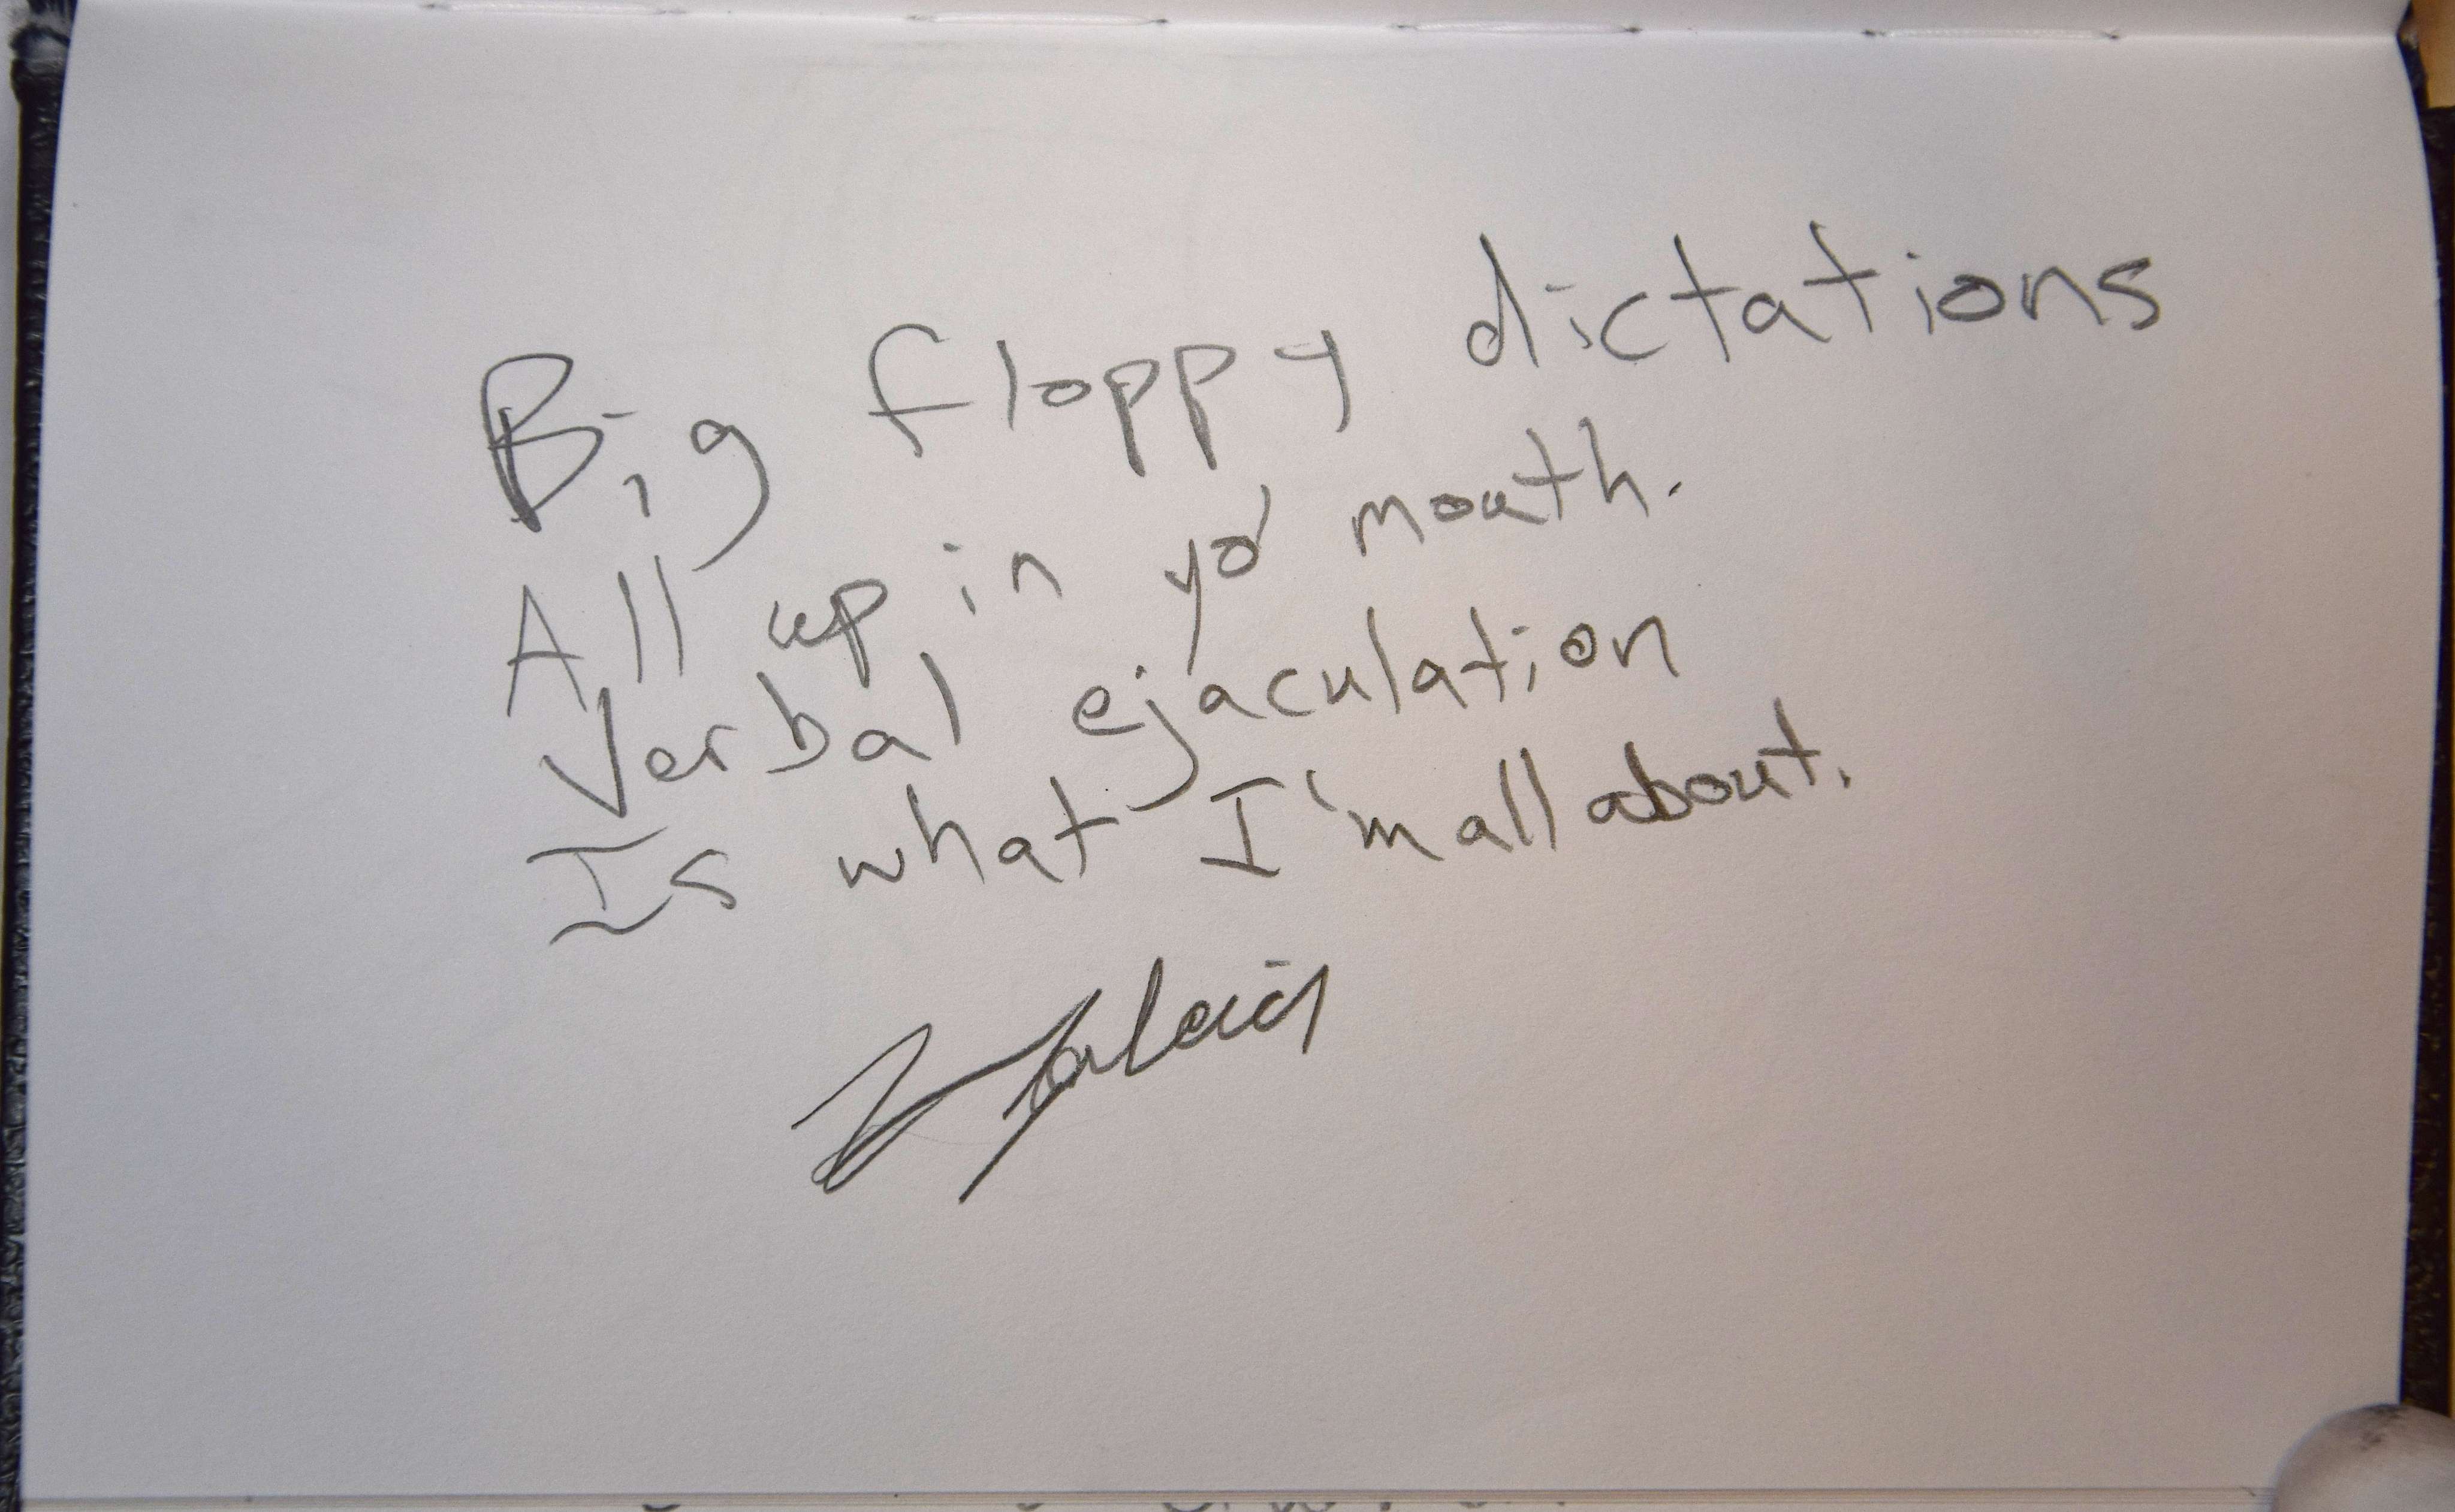 Big floppy dictations
All up in yo' mouth.
Verbal ejaculation
Is what I'm all about.